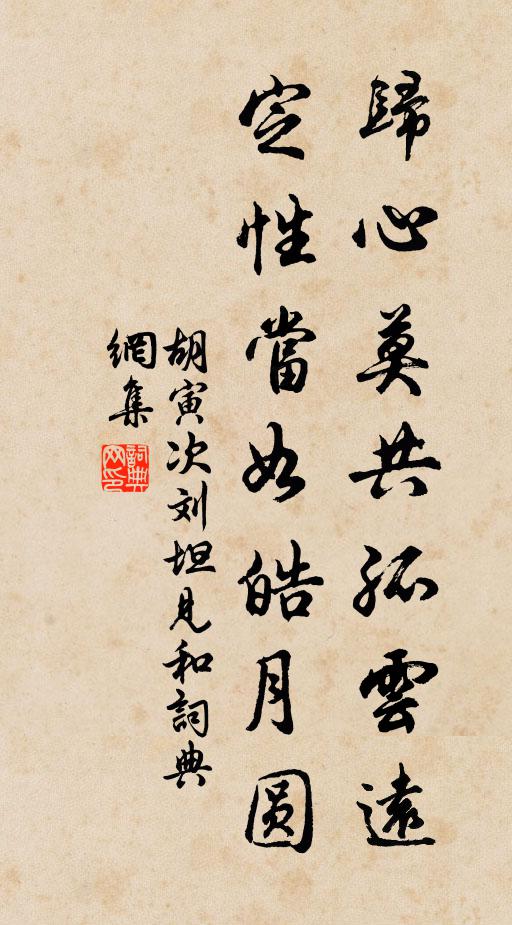 歸心莫共孤雲遠
定性當如皓月圆
胡寅次刘坦見和詞典
網集
詞典网印